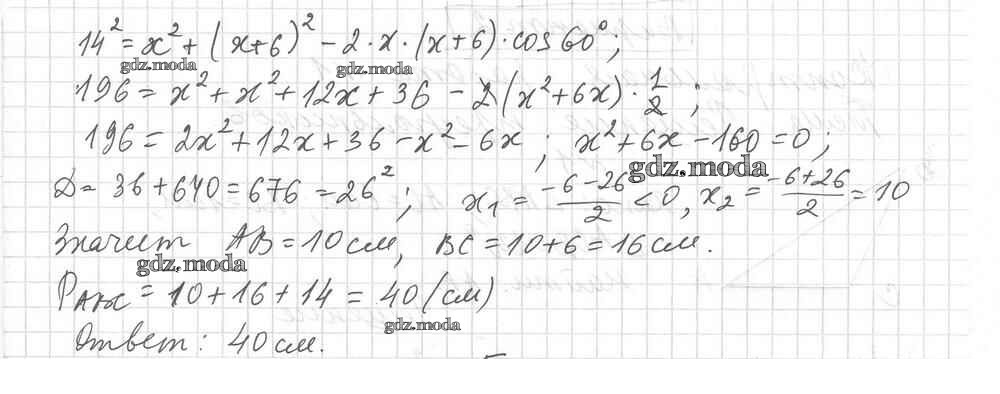 14² = x² + (x+6)² − 2·x·(x+6)·cos 60°;
gdz.moda gdz.moda
196 = x² + x² + 12x + 36 − 2(x² + 6x)·1/2;
196 = 2x² + 12x + 36 − x² − 6x; x² + 6x − 160 = 0;
gdz.moda
D = 36 + 640 = 676 = 26²; x₁ = (−6−26)/2 < 0, x₂ = (−6+26)/2 = 10
Значит AB = 10 см, BC = 10 + 6 = 16 см.
gdz.moda
P = 10 + 16 + 14 = 40 (см)
gdz.moda
Ответ: 40 см.